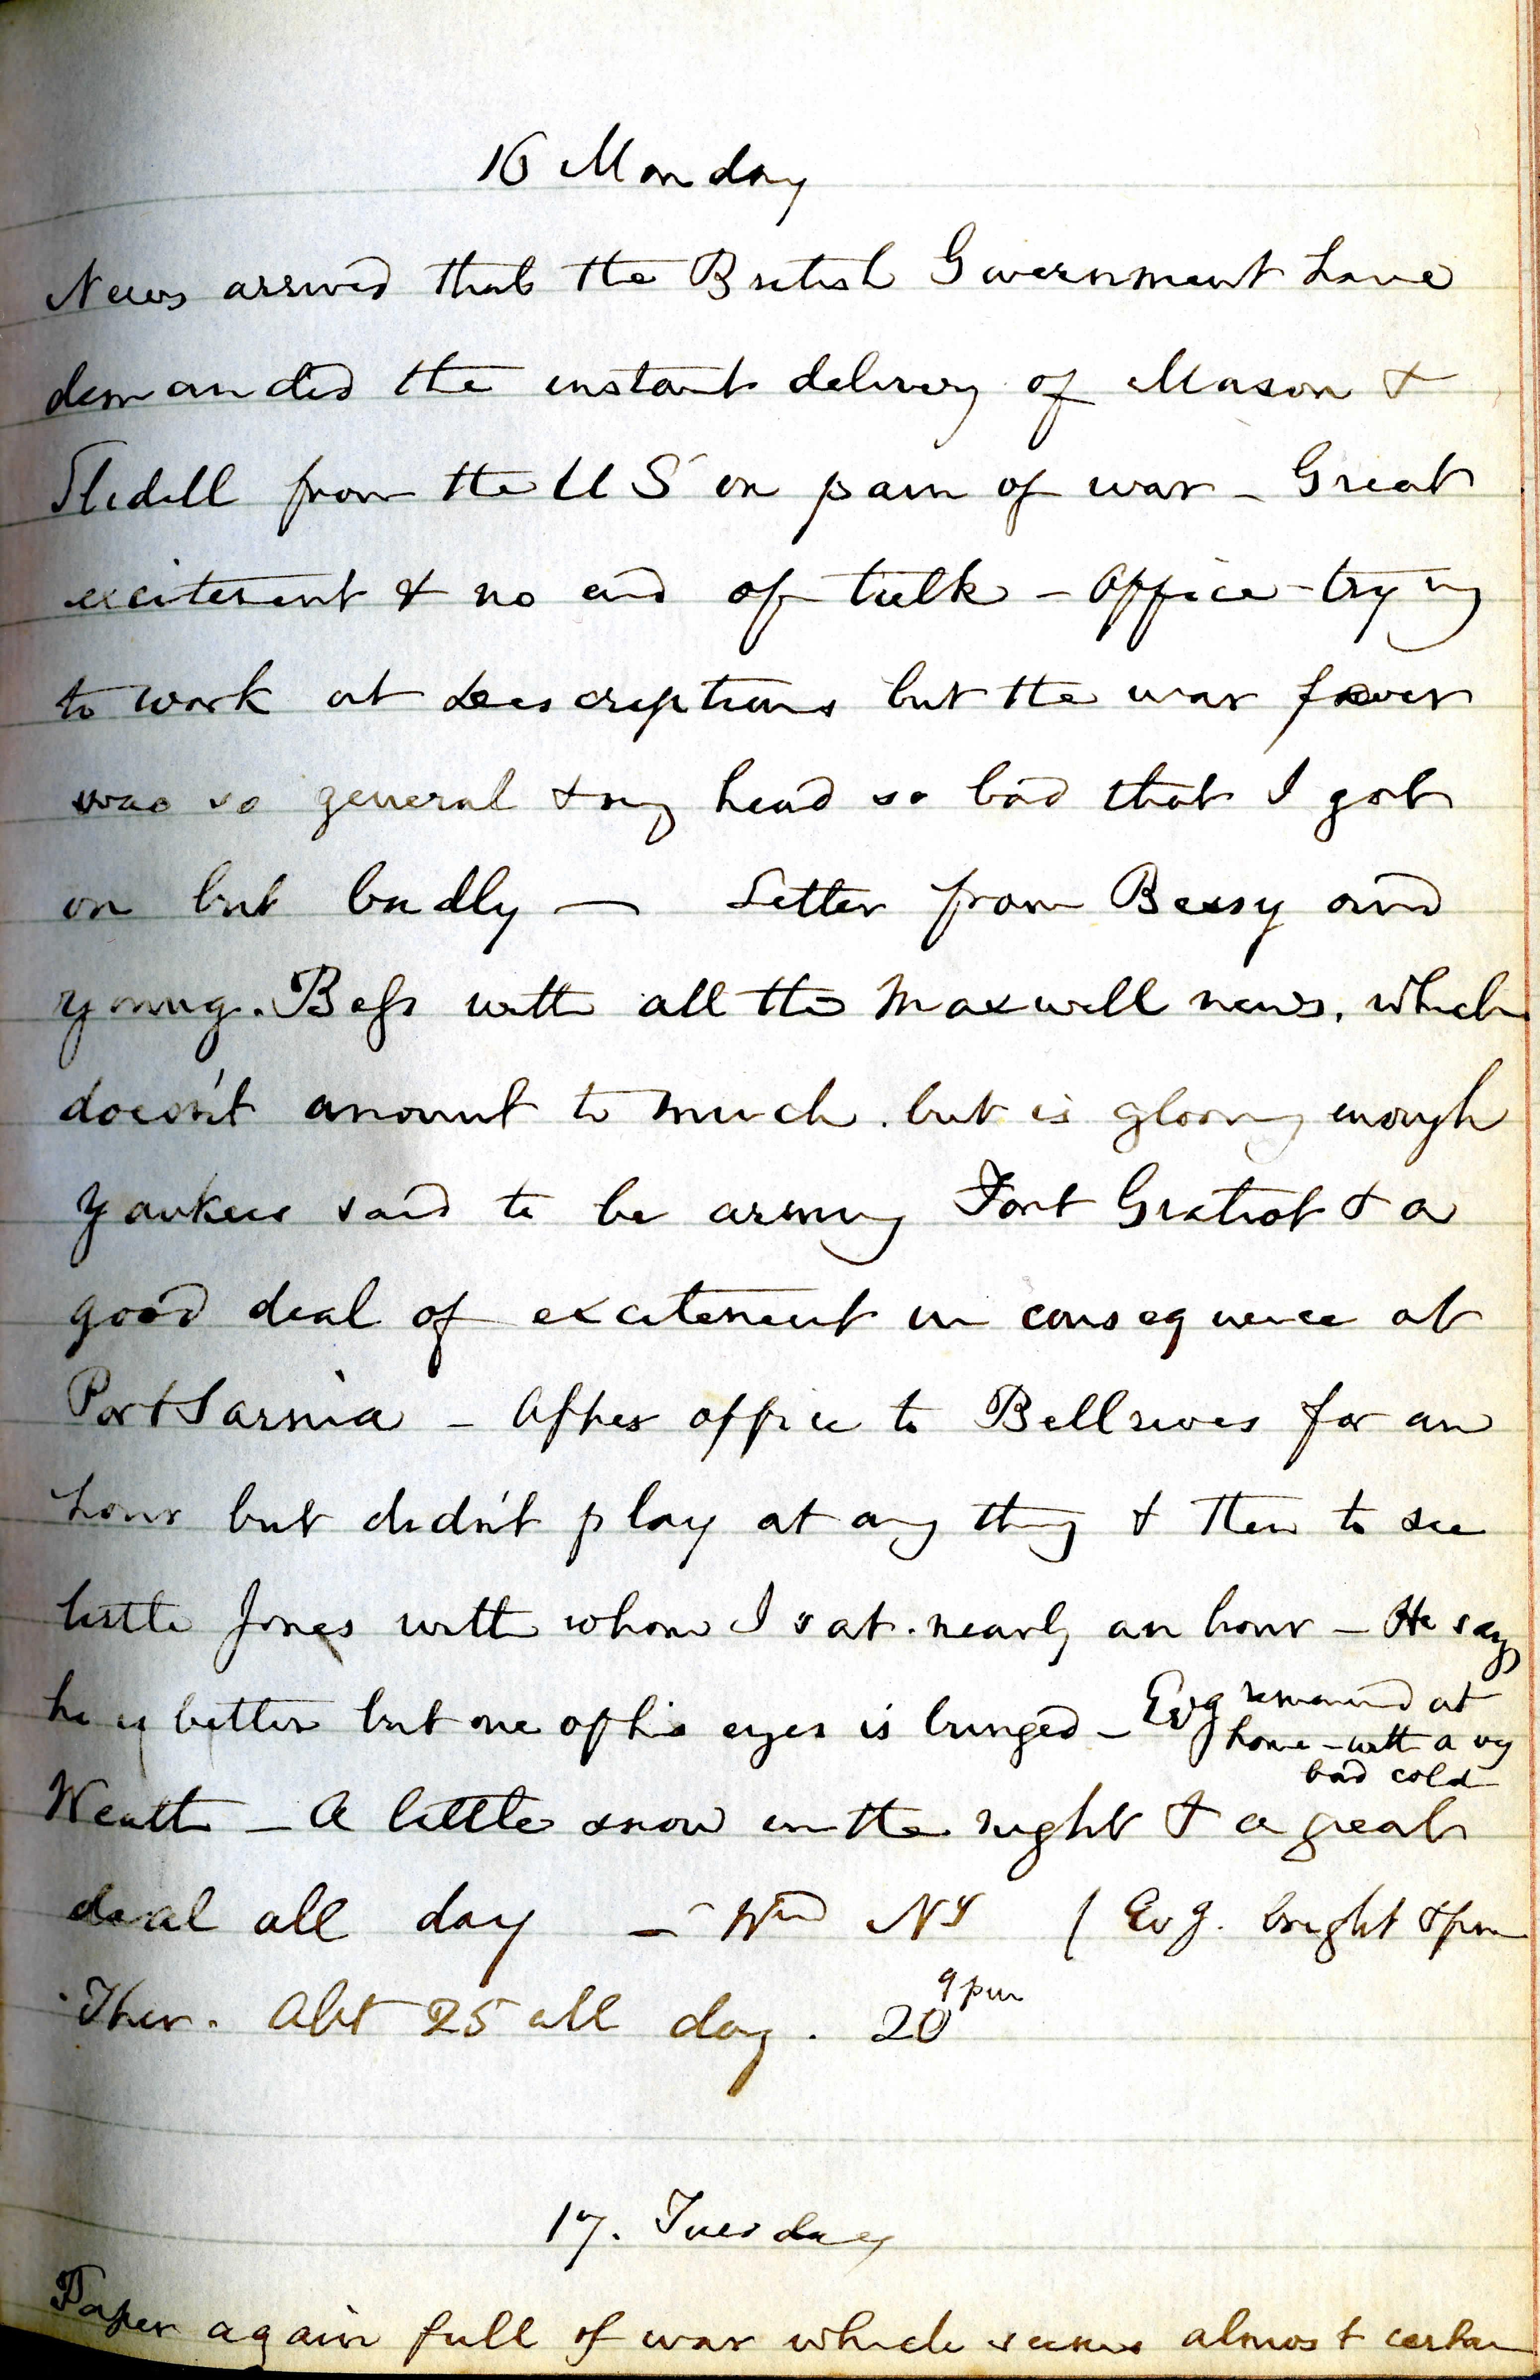 16 Monday
News arrived that the British Government have
demanded the instant delivery of Mason &
Slidell from the U S on pain of war – Great
excitement & no end of talk – Office – trying
to work at descriptions but the war fever
was so general & my head so bad that I got
on but badly — Letter from Bessy and
young. Bess with all the Maxwell news. which
doesn't amount to much. but is gloomy enough
Yankees said to be arming Fort Gratiot & a
good deal of excitement in consequence at
Port Sarnia – After office to Bellrives for an
hour but didn't play at any thing & then to see
little Jones with whom I sat. nearly an hour – He says
he is better but one of his eyes is bunged – Evg remained at
home – with a vy
bad cold
Weath – A little snow in the night & a great
deal all day – Wd NE ( Evg. bright & fine
Ther. Abt 25 all day. 20 9 pm
17. Tuesday
Paper again full of war which seems almost certain